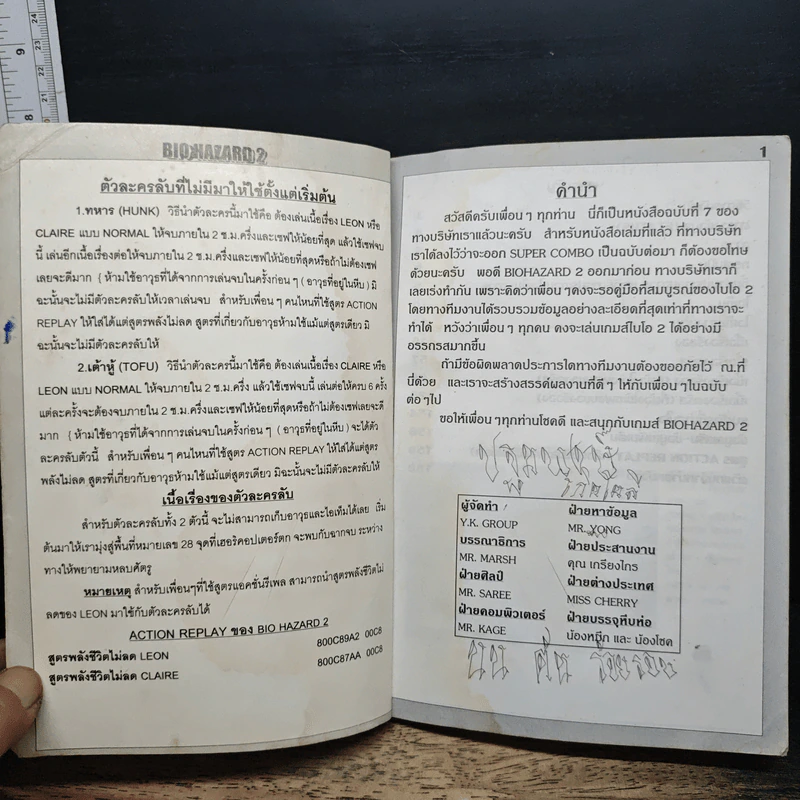 BIOHAZARD 2
ตัวละครลับที่ไม่มีมาให้ใช้ตั้งแต่เริ่มต้น
1.ทหาร (HUNK) วิธีนำตัวละครนี้มาใช้คือ ต้องเล่นเนื้อเรื่อง LEON หรือ
CLAIRE แบบ NORMAL ให้จบภายใน 2 ช.ม.ครึ่งและเซฟให้น้อยที่สุด แล้วใช้เซฟจบ
นี้ เล่นอีกเนื้อเรื่องต่อให้จบภายใน 2 ช.ม.ครึ่งและเซฟให้น้อยที่สุดหรือถ้าไม่ต้องเซฟ
เลยจะดีมาก ( ห้ามใช้อาวุธที่ได้จากการเล่นจบในครั้งก่อนๆ ( อาวุธที่อยู่ในหีบ ) มิ
ฉะนั้นจะไม่มีตัวละครลับให้เวลาเล่นจบ สำหรับเพื่อนๆ คนไหนที่ใช้สูตร ACTION
REPLAY ให้ใส่ได้แต่สูตรพลังไม่ลด สูตรที่เกี่ยวกับอาวุธห้ามใช้แม้แต่สูตรเดียว มิ
ฉะนั้นจะไม่มีตัวละครลับให้
2.เต้าหู้ (TOFU) วิธีนำตัวละครนี้มาใช้คือ ต้องเล่นเนื้อเรื่อง CLAIRE หรือ
LEON แบบ NORMAL ให้จบภายใน 2 ช.ม.ครึ่ง แล้วใช้เซฟจบนี้ เล่นต่อให้ครบ 6 ครั้ง
แต่ละครั้งจะต้องจบภายใน 2 ช.ม.ครึ่งและเซฟให้น้อยที่สุดหรือถ้าไม่ต้องเซฟเลยจะดี
มาก ( ห้ามใช้อาวุธที่ได้จากการเล่นจบในครั้งก่อนๆ ( อาวุธที่อยู่ในหีบ ) จะได้ตัว
ละครลับตัวนี้ สำหรับเพื่อนๆ คนไหนที่ใช้สูตร ACTION REPLAY ให้ใส่ได้แต่สูตร
พลังไม่ลด สูตรที่เกี่ยวกับอาวุธห้ามใช้แม้แต่สูตรเดียว มิฉะนั้นจะไม่มีตัวละครลับให้
เนื้อเรื่องของตัวละครลับ
สำหรับตัวละครลับทั้ง 2 ตัวนี้ จะไม่สามารถเก็บอาวุธและไอเท็มได้เลย เริ่ม
ต้นมาให้เรามุ่งสู่พื้นที่หมายเลข 28 จุดที่เฮอริคอปเตอร์ตก จะพบกับฉากจบ ระหว่าง
ทางให้พยายามหลบศัตรู
หมายเหตุ สำหรับเพื่อนๆที่ใช้สูตรแอคชั่นรีเพล สามารถนำสูตรพลังชีวิตไม่
ลดของ LEON มาใช้กับตัวละครลับได้
ACTION REPLAY ของ BIO HAZARD 2
สูตรพลังชีวิตไม่ลด LEON 800C89A2 00C8
สูตรพลังชีวิตไม่ลด CLAIRE 800C87AA 00C8
1
คำนำ
สวัสดีครับเพื่อนๆ ทุกท่าน นี่ก็เป็นหนังสือฉบับที่ 7 ของ
ทางบริษัทเราแล้วนะครับ สำหรับหนังสือเล่มที่แล้ว ที่ทางบริษัท
เราได้ลงไว้ว่าจะออก SUPER COMBO เป็นฉบับต่อมา ก็ต้องขอโทษ
ด้วยนะครับ พอดี BIOHAZARD 2 ออกมาก่อน ทางบริษัทเราก็
เลยเร่งทำกัน เพราะคิดว่าเพื่อนๆคงจะรอคู่มือที่สมบูรณ์ของไบโอ 2
โดยทางทีมงานได้รวบรวมข้อมูลอย่างละเอียดที่สุดเท่าที่ทางเราจะ
ทำได้ หวังว่าเพื่อนๆ ทุกคน คงจะเล่นเกมส์ไบโอ 2 ได้อย่างมี
อรรถรสมากขึ้น
ถ้ามีข้อผิดพลาดประการใดทางทีมงานต้องขออภัยไว้ ณ.ที่
นี้ด้วย และเราจะสร้างสรรค์ผลงานที่ดีๆ ให้กับเพื่อนๆในฉบับ
ต่อๆไป
ขอให้เพื่อนๆทุกท่านโชคดี และสนุกกับเกมส์ BIOHAZARD 2
ผู้จัดทำ
Y.K. GROUP
บรรณาธิการ
MR. MARSH
ฝ่ายศิลป์
MR. SAREE
ฝ่ายคอมพิวเตอร์
MR. KAGE
ฝ่ายหาข้อมูล
MR. YONG
ฝ่ายประสานงาน
คุณ เกรียงไกร
ฝ่ายต่างประเทศ
MISS CHERRY
ฝ่ายบรรจุหีบห่อ
น้องหมึก และ น้องโชค